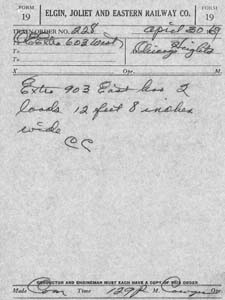 FORM 19
ELGIN, JOLIET AND EASTERN RAILWAY CO.
FORM 19
TRAIN ORDER NO. 228
April 30 69
To Extra 603 West
Chicago Heights
X Opr. M.
Extra 903 East has 2
loads 12 feet 8 inches
wide
CC
CONDUCTOR AND ENGINEMAN MUST EACH HAVE A COPY OF THIS ORDER
Made Com Time 129 P M. Opr.